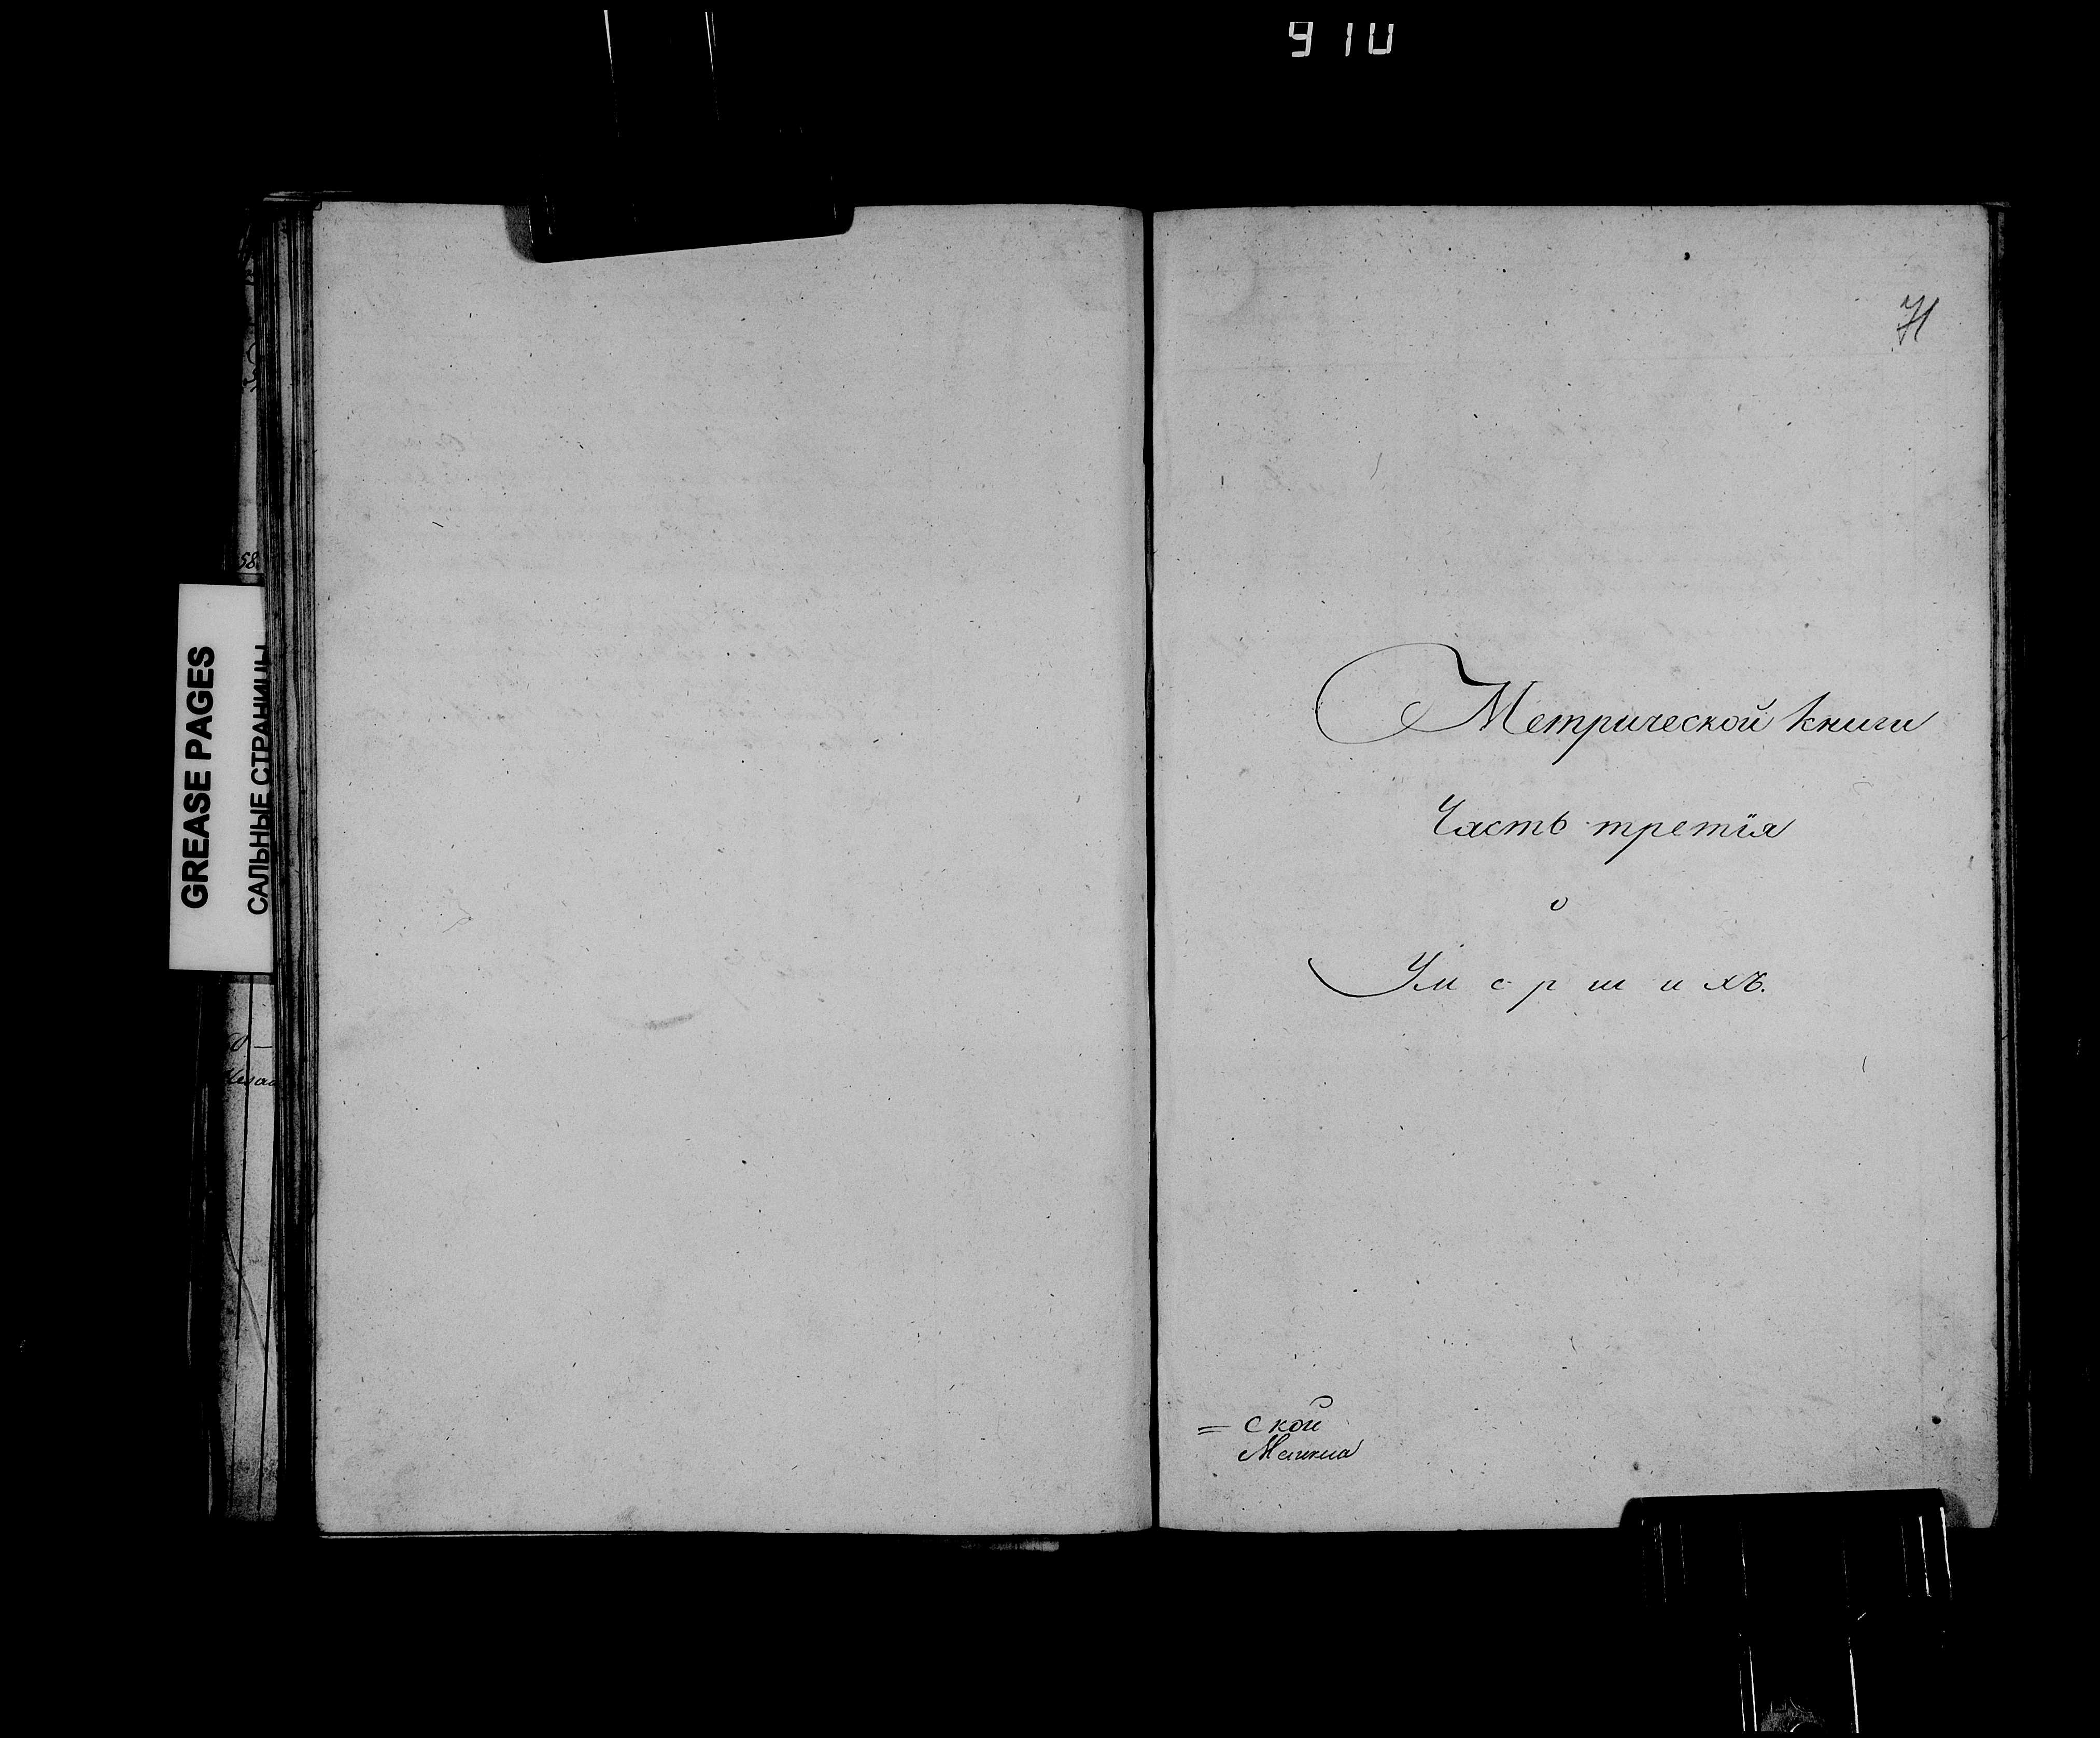 910
71
GREASE PAGES
САЛЬНЫЕ СТРАНИЦЫ
58
Метрической книги
Часть третія
о
Умершихъ.
= ской